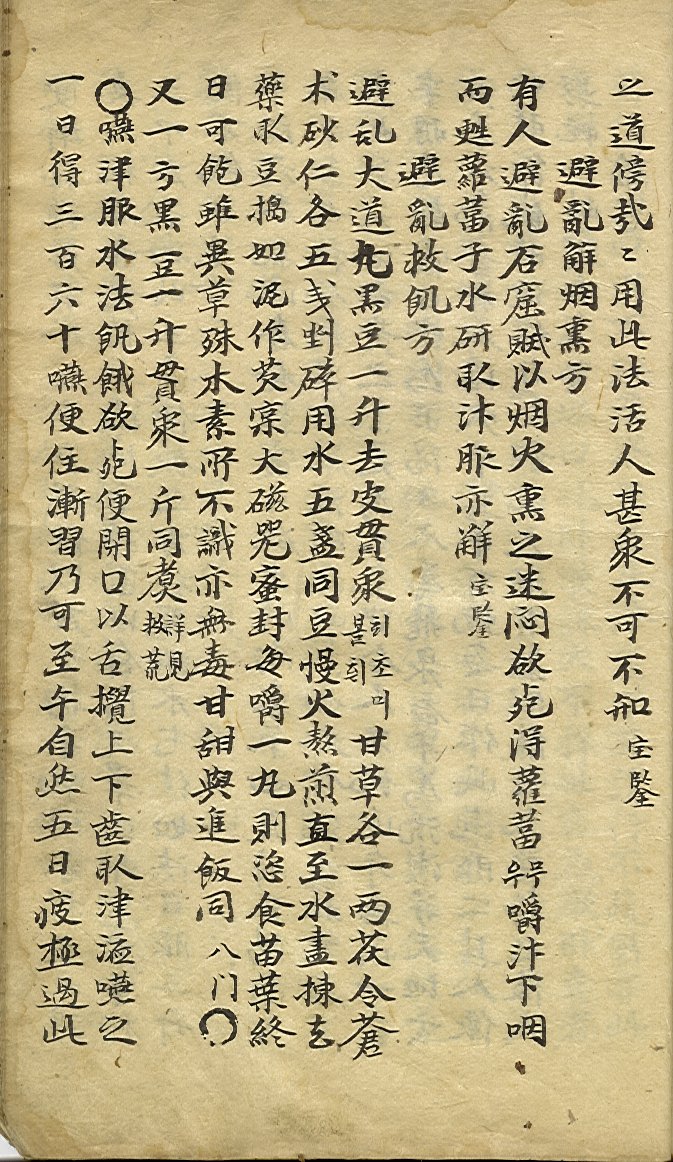 之道傍哉〻用此法活人甚衆不可不知 宝鑒
避亂解烟熏方
有人避亂石窟賊以烟火熏之迷悶欲死得蘿葍무우嚼汁下咽
而甦蘿葍子水研取汁服亦解 宝鑒
避亂救飢方
避乱大道丸黑豆一升去皮貫衆 희초미불휘 甘草各一兩茯令蒼
术砂仁各五戔剉碎用水五盞同豆慢火熬煎直至水盡揀去
藥取豆搗如泥作芡宲大磁器蜜封每嚼一丸則恣食苗葉終
日可飽雖異草殊木素所不識亦無毒甘甜與進飯同 八门〇
又一方黑豆一升貫衆一斤同煑 詳見救荒
〇嚥津服水法飢餓欲死便開口以舌攪上下齒取津液嚥之
一日得三百六十嚥便佳漸習乃可至午自然五日疲極過此